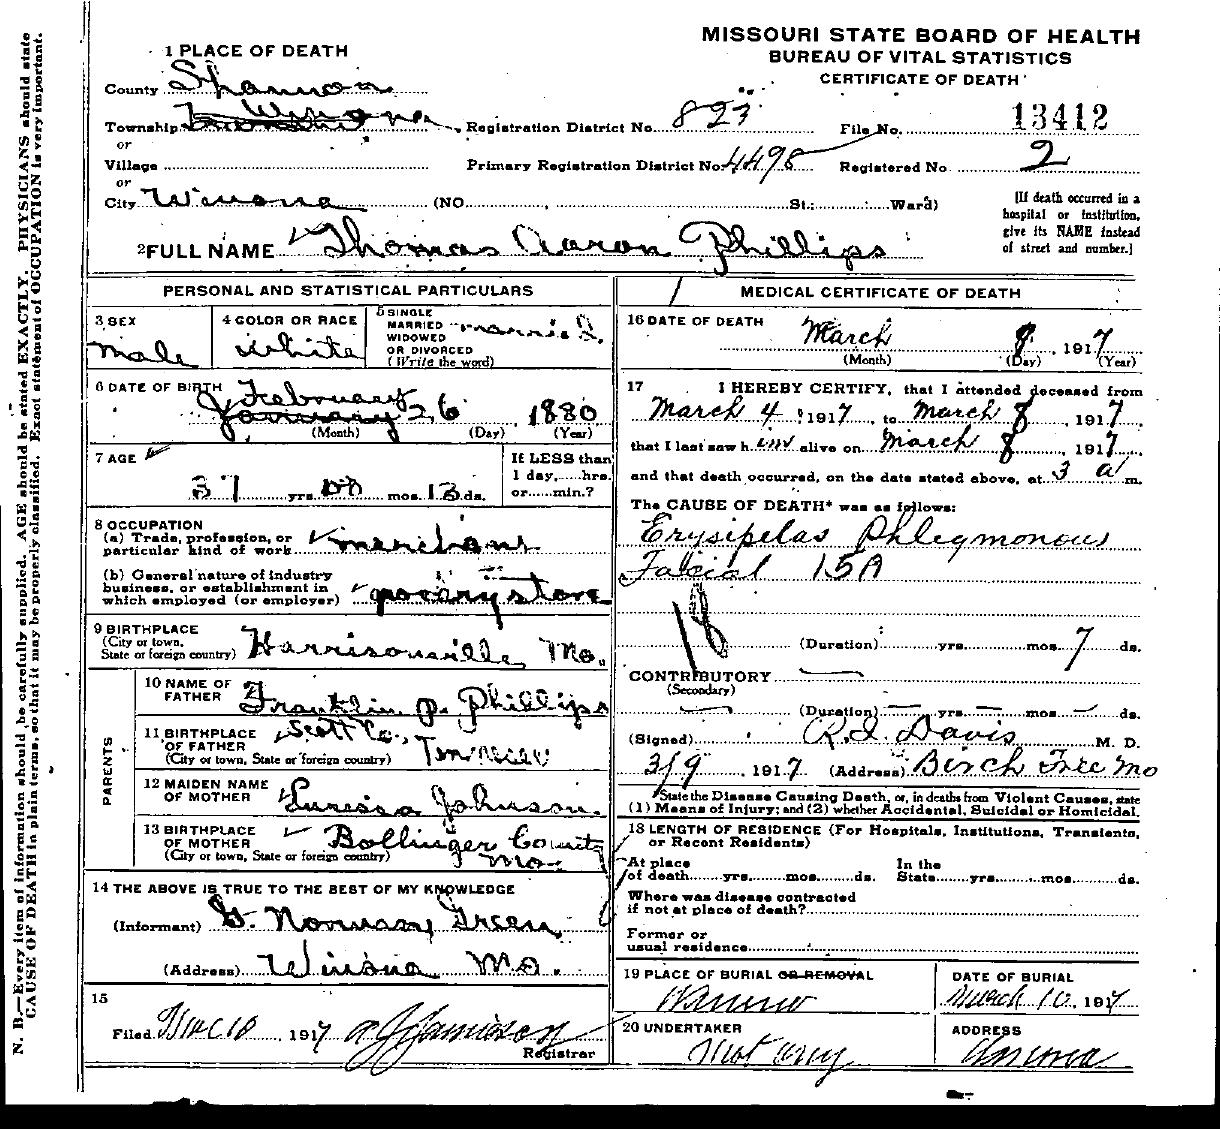 MISSOURI STATE BOARD OF HEALTH
BUREAU OF VITAL STATISTICS
CERTIFICATE OF DEATH
1 PLACE OF DEATH
County Shannon
Township Winona
Registration District No. 823
File No. 13412
or
Village
Primary Registration District No. 4498
Registered No. 2
or
City Winona (NO. , St.: Ward)
[If death occurred in a
hospital or institution,
give its NAME instead
of street and number.]
2 FULL NAME Thomas Aaron Phillips
PERSONAL AND STATISTICAL PARTICULARS
3 SEX
male
4 COLOR OR RACE
white
5 SINGLE
MARRIED
WIDOWED
OR DIVORCED
(Write the word)
married.
6 DATE OF BIRTH February
January 26, 1880
(Month) (Day) (Year)
7 AGE
37 yrs. mos. 13 ds.
If LESS than
1 day,.....hrs.
or.....min.?
8 OCCUPATION
(a) Trade, profession, or
particular kind of work merchant
(b) General nature of industry
business, or establishment in
which employed (or employer) grocery store
9 BIRTHPLACE
(City or town,
State or foreign country) Harrisonville, Mo.
PARENTS
10 NAME OF
FATHER Franklin P. Phillips
11 BIRTHPLACE
OF FATHER
(City or town, State or foreign country)
Scott Co.,
12 MAIDEN NAME
OF MOTHER Johnson
13 BIRTHPLACE
OF MOTHER
(City or town, State or foreign country)
Bollinger County
Mo.
14 THE ABOVE IS TRUE TO THE BEST OF MY KNOWLEDGE
(Informant) G. Norman Green
(Address) Winona Mo.
15
Filed 10, 1917 Jamieson
Registrar
MEDICAL CERTIFICATE OF DEATH
16 DATE OF DEATH March 8, 1917
(Month) (Day) (Year)
17 I HEREBY CERTIFY, that I attended deceased from
March 4, 1917, to March 8, 1917
that I last saw him alive on March 8, 1917
and that death occurred, on the date stated above, at 3 a m.
The CAUSE OF DEATH* was as follows:
Erysipelas Phlegmonous
Facial 15A
18
(Duration) yrs. mos. 7 ds.
CONTRIBUTORY
(Secondary)
(Duration) yrs. mos. ds.
(Signed) Davis M. D.
3/9, 1917 (Address) Birch Tree Mo
*State the Disease Causing Death, or, in deaths from Violent Causes, state
(1) Means of Injury; and (2) whether Accidental, Suicidal or Homicidal.
18 LENGTH OF RESIDENCE (For Hospitals, Institutions, Transients,
or Recent Residents)
At place
of death......yrs......mos......ds.
In the
State......yrs......mos......ds.
Where was disease contracted
if not at place of death?
Former or
usual residence
19 PLACE OF BURIAL OR REMOVAL
Winona
DATE OF BURIAL
March 10, 1917
20 UNDERTAKER
Not any
ADDRESS
Winona
N. B.—Every item of information should be carefully supplied. AGE should be stated EXACTLY. PHYSICIANS should state
CAUSE OF DEATH in plain terms, so that it may be properly classified. Exact statement of OCCUPATION is very important.